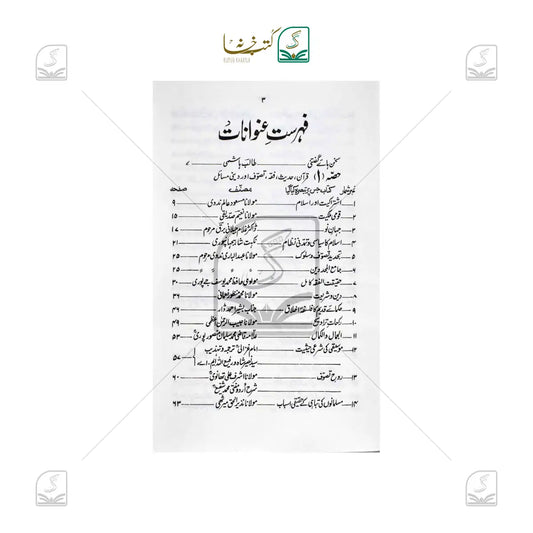 کتب خانہ
۳
فہرست عنوانات
سخن ہائے گفتنی طالب ہاشمی ۷
حصہ (۱) قرآن، حدیث، فقہ، تصوف اور دینی مسائل
نمبر شمار کتاب جس پر تبصرہ کیا گیا مصنف صفحہ
۱۔ اشتراکیت اور اسلام مولانا مسعود عالم ندوی ۹
۲۔ قومی ملکیت مولانا نعیم صدیقی ۱۵
۳۔ جہانِ نو ڈاکٹر غلام جیلانی برق مرحوم ۱۷
۴۔ اسلام کا سیاسی و تمدنی نظام نکہت شاہجہانپوری ۲۱
۵۔ تجدید تصوف و سلوک مولانا عبدالباری ندوی مرحوم ۲۵
۶۔ جامع المجددین ۲۵
۷۔ حقیقت الفقہ کامل مولوی حافظ محمد یوسف جے پوری ۳۰
۸۔ دین و شریعت مولانا محمد منظور نعمانی ۳۶
۹۔ حکمائے قدیم کا فلسفہ اخلاق جناب بشیر احمد ڈار ۴۶
۱۰۔ رکعات تراویح مولانا حبیب الرحمٰن اعظمی ۴۹
۱۱۔ الجمال والکمال علامہ قاضی محمد سلمان منصورپوری ۵۳
۱۲۔ موسیقی کی شرعی حیثیت امام غزالی ترجمہ و تہذیب
سید نصیر شاہ و رفیع اللہ ایم۔ اے ۵۷
۱۳۔ روح تصوف مولانا اشرف علی تھانوی ۶۰
شرح اردو مفتی محمد شفیع
۱۴۔ مسلمانوں کی تباہی کے حقیقی اسباب مولانا نذیر الحق میرٹھی ۶۳